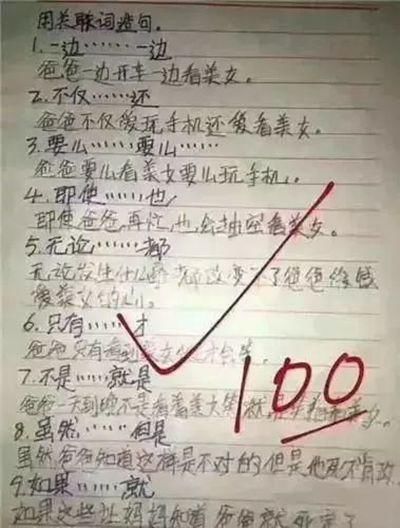 用关联词造句。
1.一边……一边
爸爸一边开车一边看美女。
2.不仅……还
爸爸不仅爱玩手机还爱看美女。
3.要么……要么……
爸爸要么看美女要么玩手机。
4.即使……也
即使爸爸再忙,也会抽空看美女。
5.无论……都
无论发生什么都改变不了爸爸
爱美女的心。
6.只有……才
爸爸只有看到美女才会笑。
7.不是……就是
爸爸一天到晚不是看着美女笑就是
8.虽然……但是
虽然爸爸知道这样是不对的但是他死不肯改
9.如果……就
如果这些让妈妈知道爸爸就死定了
100